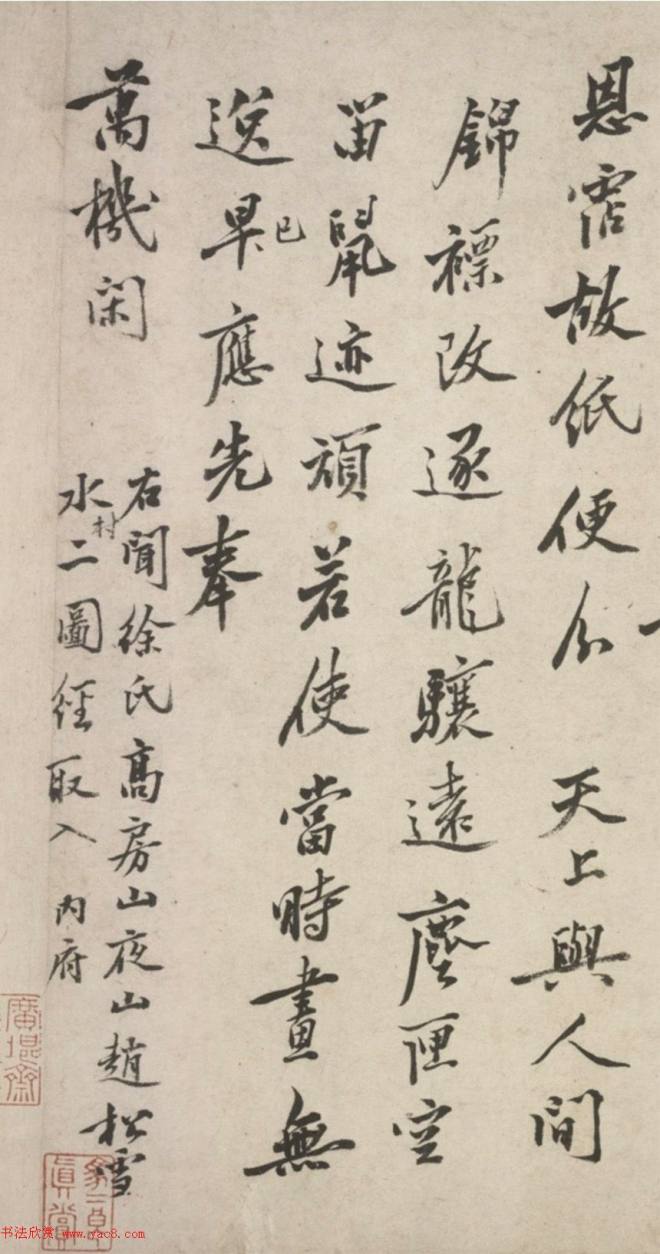 恩霑故紙便分天上與人間
錦標改逐龍驤遠塵匣空
留鼠迹頑若使當時畫無
逸早已應先奉
萬機閑
右聞徐氏高房山夜山趙松雪
水村二圖經取入內府
書法欣賞 www.yac8.com